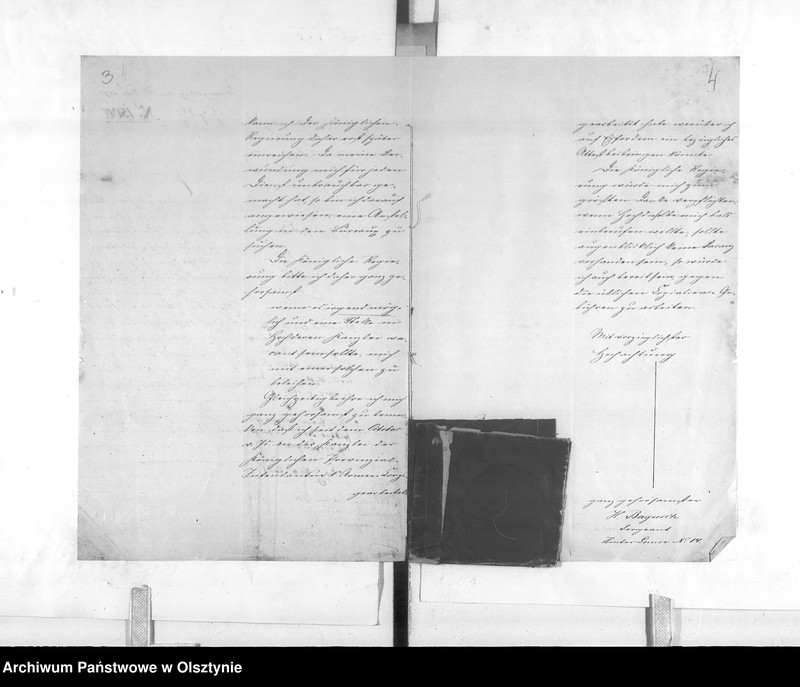 3
kann ich der Königlichen
Regierung daher erst später
einreichen. Da meine Ver-
wundung mich für jeden
Dienst unbrauchbar ge-
macht hat, so bin ich darauf
angewiesen, eine Anstel-
lung in dem Bureau zu
suchen.
Die Königliche Regie-
rung bitte ich daher ganz ge-
horsamst
wenn es irgend mög-
lich und eine Stelle in
Hochderen Kanzlei va-
cant sein sollte, mich
mit einer solchen zu
beleihen.
Gleichzeitig beehre ich mich
ganz gehorsamst zu bemer-
ken daß ich seit dem October
v. Js. in der Kanzlei der
Königlichen Provinzial-
Intendantur Armee Corps
gearbeitet
4
gearbeitet habe worüber ich
auf Erfordern ein bezügliches
Attest beibringen könnte.
Die Königliche Regie-
rung würde mich zum
größten Danke verpflichten,
wenn Hochdieselbe mich bald
einberufen wollte, sollte
augenblicklich keine Vacanz
vorhanden sein, so würde
ich auch bereit sein gegen
die üblichen Copialien-Ge-
bühren zu arbeiten.
Mit vorzüglichster
Hochachtung
ganz gehorsamster
H.
Sergeant
No 14
Archiwum Państwowe w Olsztynie